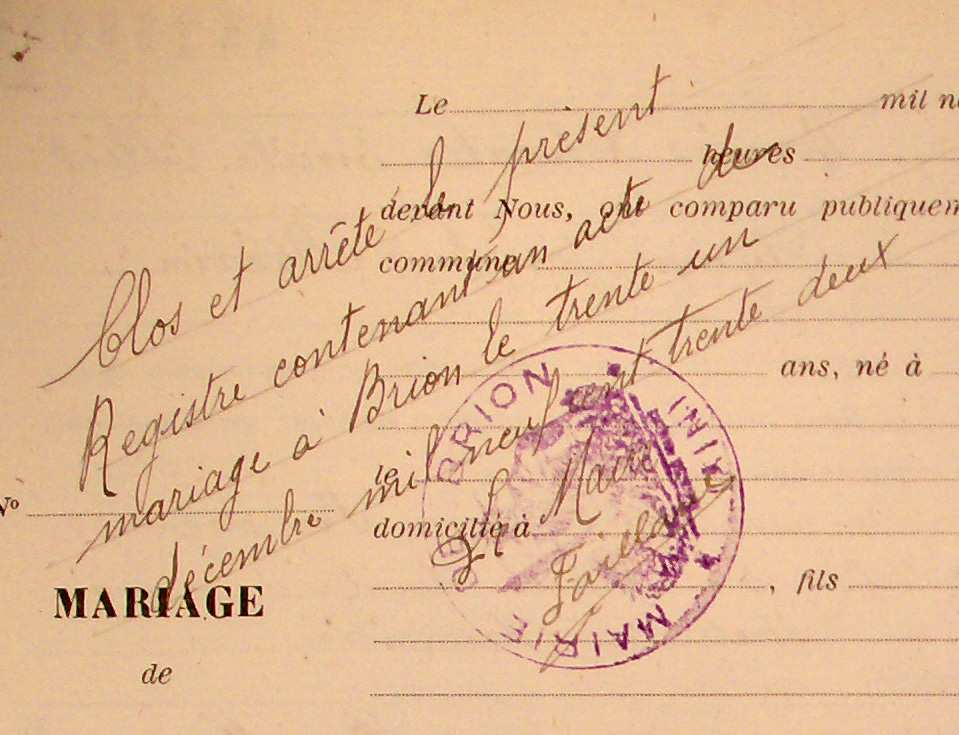 Le mil n
heures
devant Nous, ont comparu publiquem
commune
ans, né à
le
domicilié à
, fils
Nº
MARIAGE
de
Clos et arrête le présent
Registre contenant un acte de
mariage à Brion le trente un
décembre mil neuf cent trente deux
Le Maire
MAIRIE DE BRION